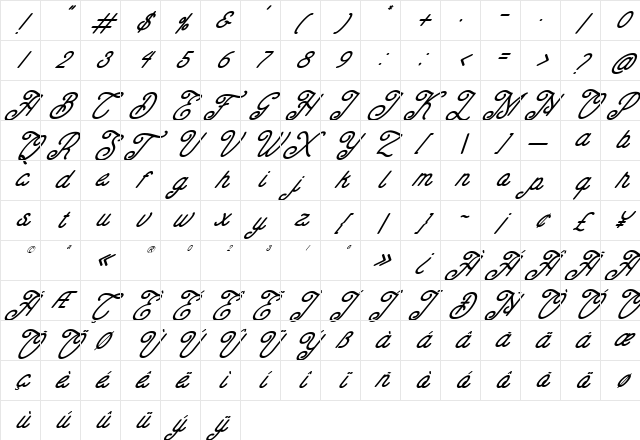 ! " # $ % & ' ( ) * + . - . / 0
1 2 3 4 5 6 7 8 9 : ; < = > ? @
A B C D E F G H I J K L M N O P
Q R S T U V W X Y Z [ \ ] — a b
c d e f g h i j k l m n a p q r
s t u v w x y z [ | ] ~ ¡ ¢ £ ¥
© ª « ® 0 2 3 1 º » ¿ À Á Â Ã Ä
Å Æ Ç È É Ê Ë Ì Í Î Ï Ð Ñ Ò Ó Ô
Õ Ö Ø Ù Ú Û Ü Ý ß à á â ã ä å æ
ç è é ê ë ì í î ï ñ ò ó ô õ ö ø
ù ú û ü ý ÿ